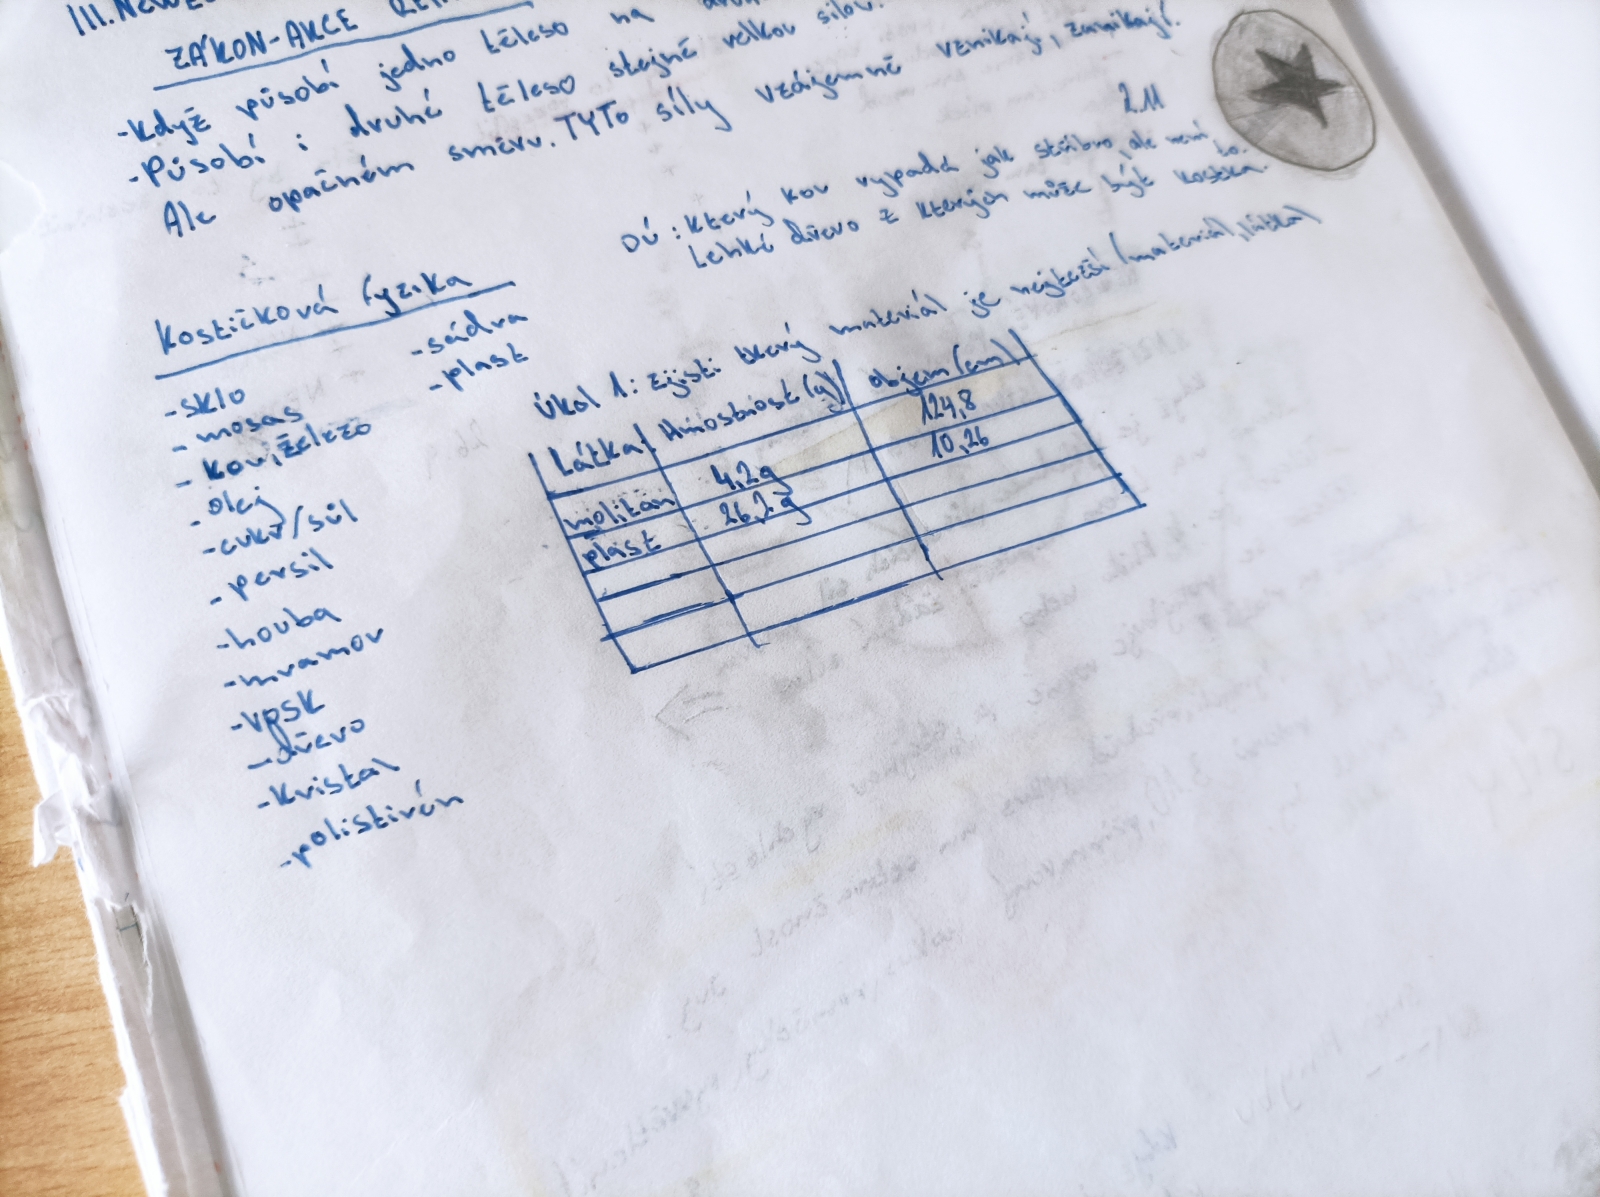 III. NEW
ZÁKON-AKCE
-Když působí jedno těleso na
-Působí i druhé těleso stejně velkou silou.
Ale opačném směru. TYTo síly vzájemně vznikají, zanikají.
2.11
DÚ: Který kov vypadá jak stříbro, ale není to.
Lehké dřevo z kterých může být kostka.
Kostičková fyzika
-sklo
-mosas
-kov, železo
-olej
-cukr/sůl
-persil
-houba
-mramor
-vpsk
-dřevo
-kristal
-polistirén
-sádra
-plast
Úkol 1: zjisti který materiál je nejtežší (materiál, látka)
Látka Hmostnost (g) objem (cm)
molitan 4,2g 124,8
plast 26,2g 10,26